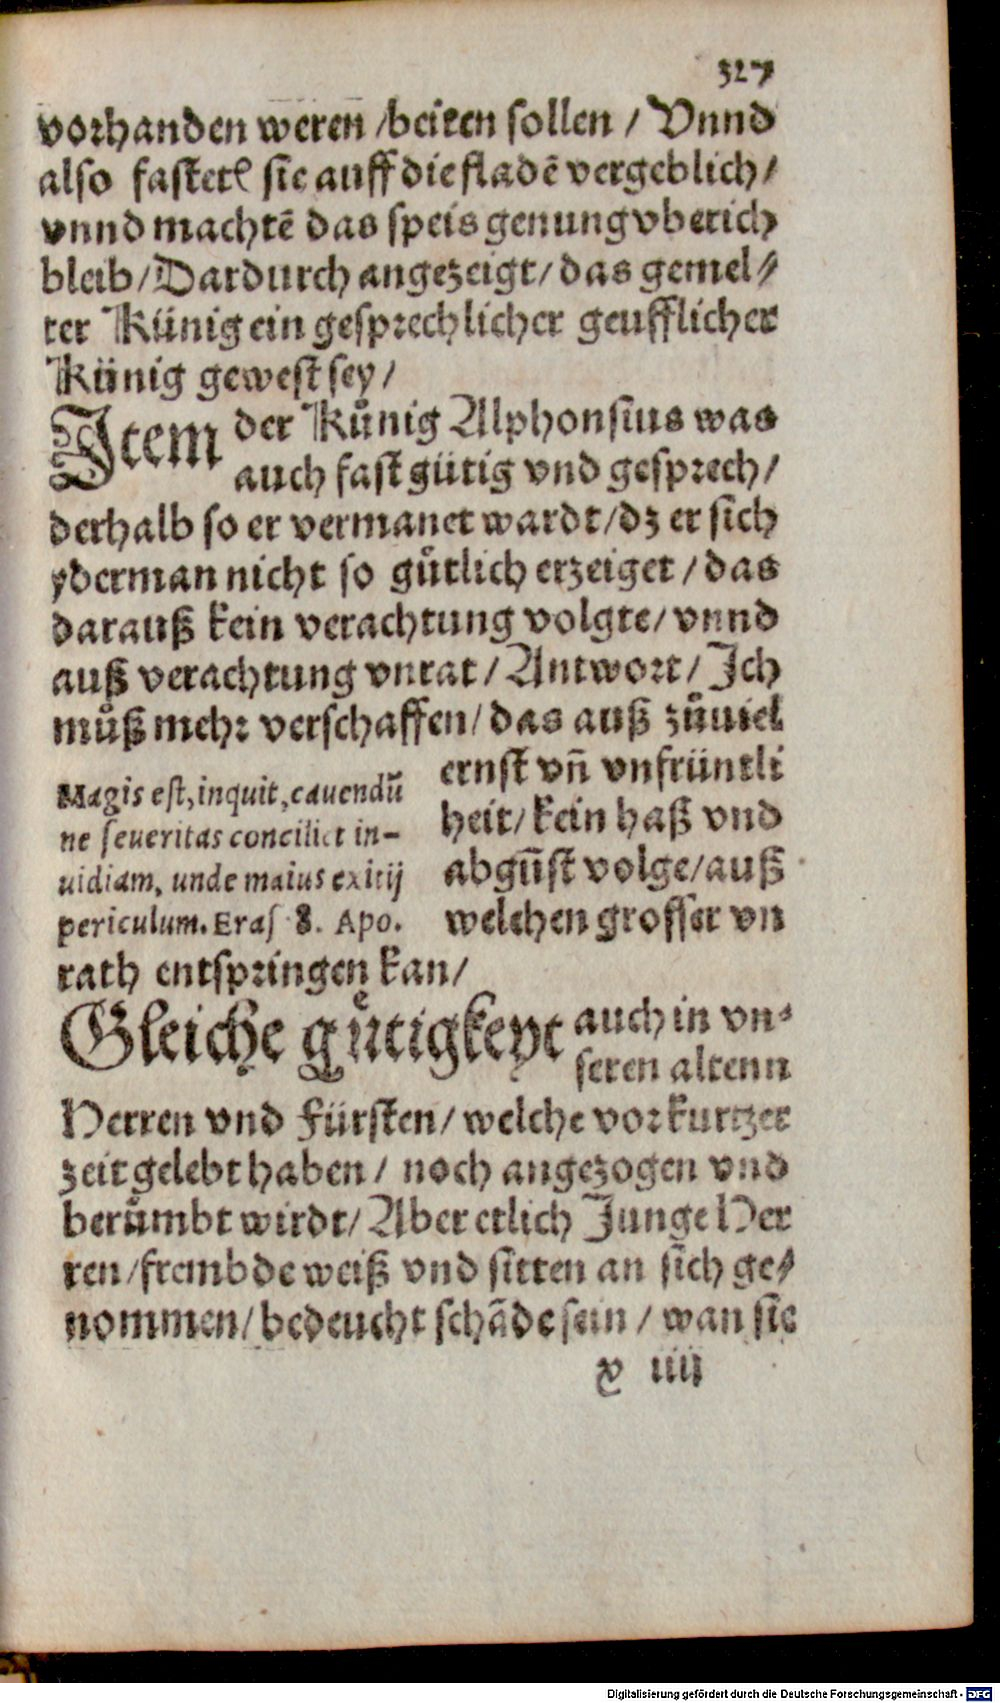 327
vorhanden weren /beiten sollen / Vnnd
also fastetē sie auff die fladē vergeblich/
vnnd machtē das speis genung vberich
bleib/Dardurch angezeigt/das gemel⸗
ter Künig ein gesprechlicher geufflicher
Künig gewest sey /
Item der Kůnig Alphonsius was
auch fast gütig vnd gesprech/
derhalb so er vermanet wardt/dz er sich
yderman nicht so gůtlich erzeiget /das
darauß kein verachtung volgte/vnnd
auß verachtung vnrat/Antwort/Ich
můß mehr verschaffen/das auß zůuiel
ernst vñ vnfrüntli
heit/kein haß vnd
abgũst volge/auß
welchen grosser vn
Magis est,inquit,cauendũ
ne seueritas conciliet in-
uidiam, unde maius exitij
periculum.Eras 8. Apo.
rath entspringen kan/
Gleiche gůtigkeyt auch in vn⸗
seren altenn
Herren vnd Fürsten/welche vor kurtzer
zeit gelebt haben / noch angezogen vnd
berůmbt wirdt/Aber etlich Junge Her
ren/frembde weiß vnd sitten an sich ge⸗
nommen/bedeucht schãde sein / wan sie
x iiij
Digitalisierung gefördert durch die Deutsche Forschungsgemeinschaft - DFG